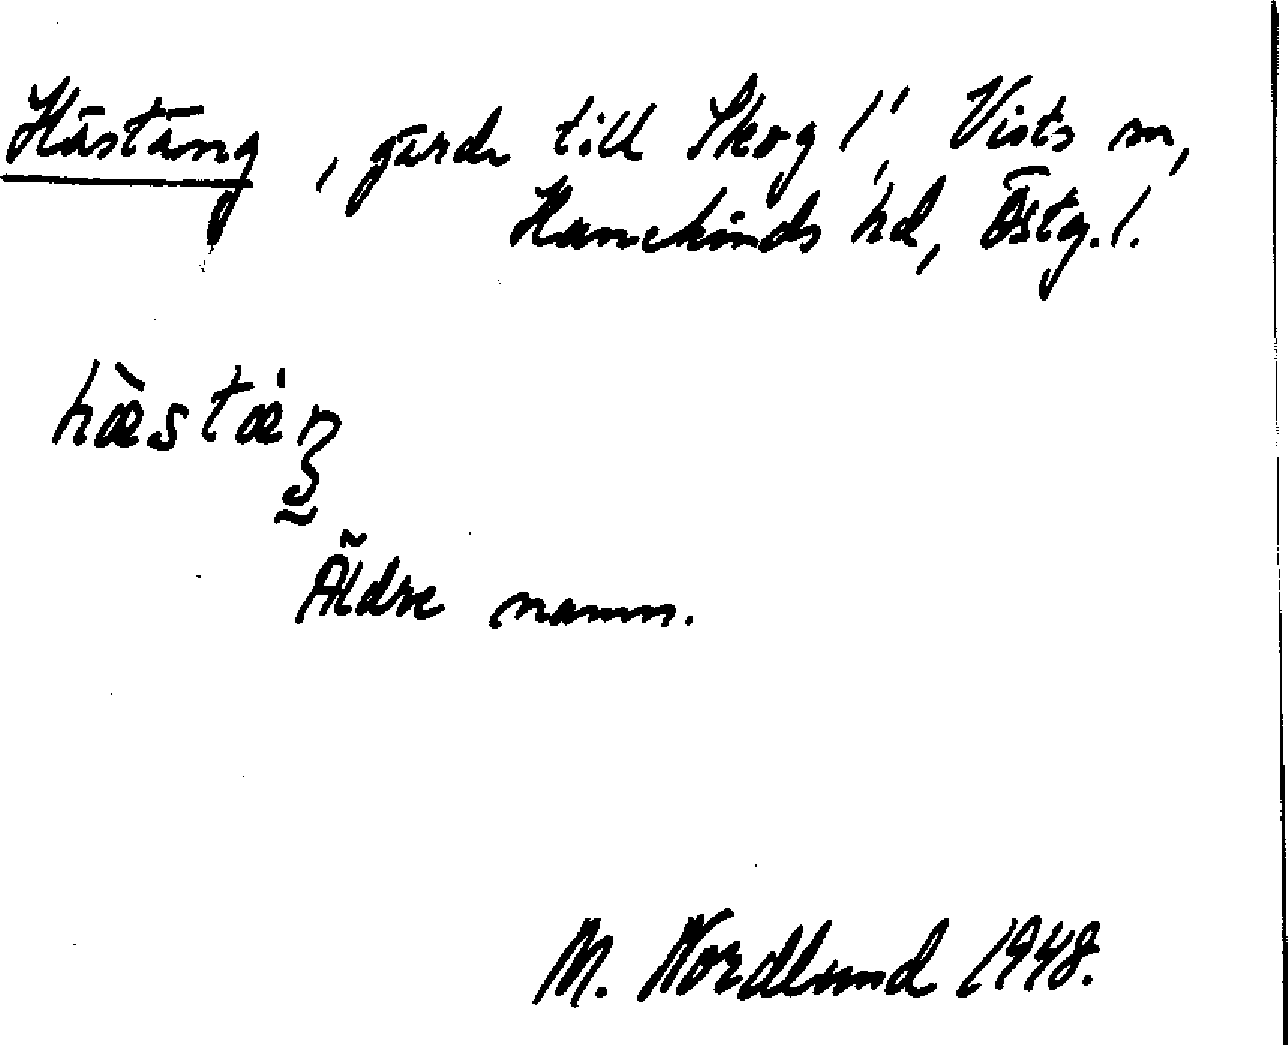 Hästäng, gärde till Skog 1', Vists sn,
Hanekinds hd, Östg. l.
hæ̀stæ̀ŋ
Äldre namn.
M. Nordlund 1948.